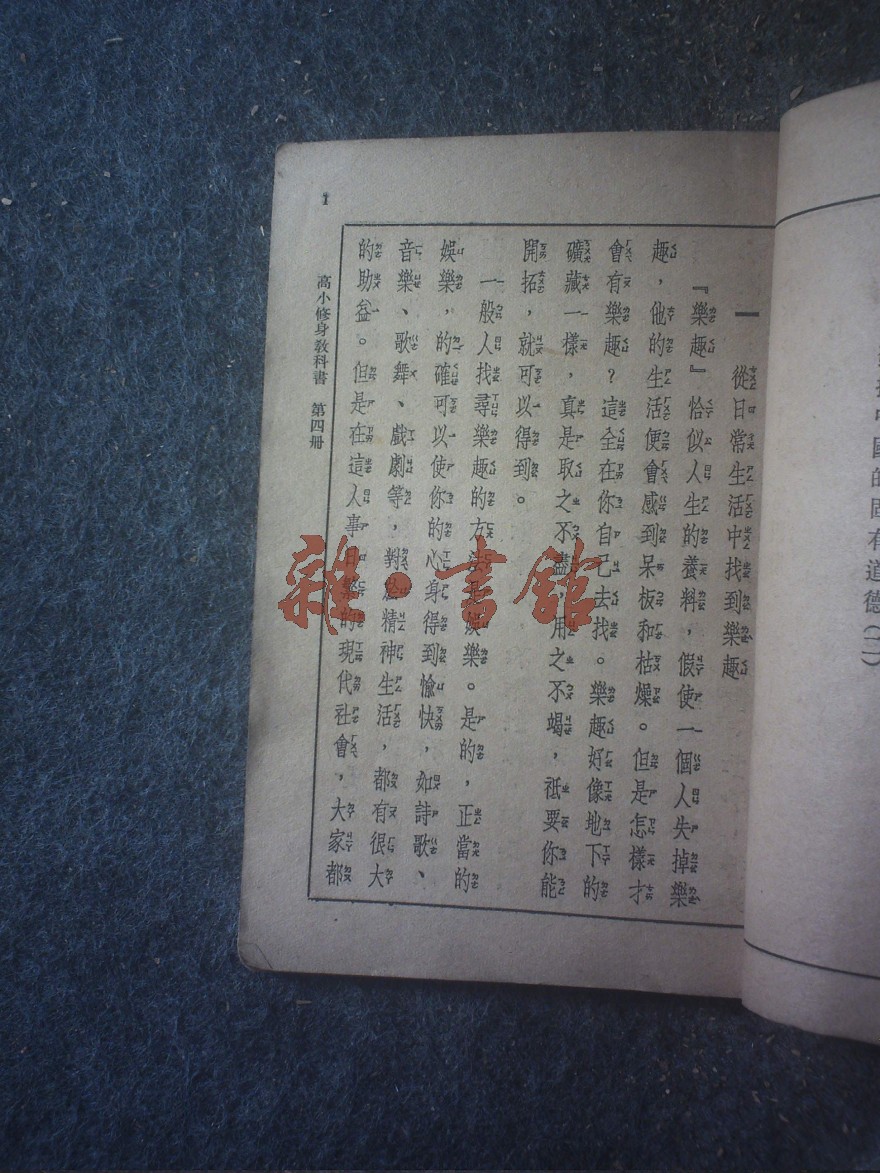 國的固有道德(二)
一 從日常生活中找到樂趣
『樂趣』恰似人生的養料，假使一個人失掉樂
趣，他的生活便會感到呆板和枯燥。但是怎樣才
會有樂趣？這全在你自己去找。樂趣好像地下的
礦藏一樣，真是取之不盡，用之不竭，祇要你能
開拓，就可以得到。
一般人找尋樂趣的方法是娛樂。是的，正當的
娛樂，的確可以使你的心身得到愉快，如詩歌、
音樂、歌舞、戲劇等，對於精神生活，都有很大
的助益。但是在這人事日繁的現代社會，大家都
高小修身教科書 第四册
1
雜·書館